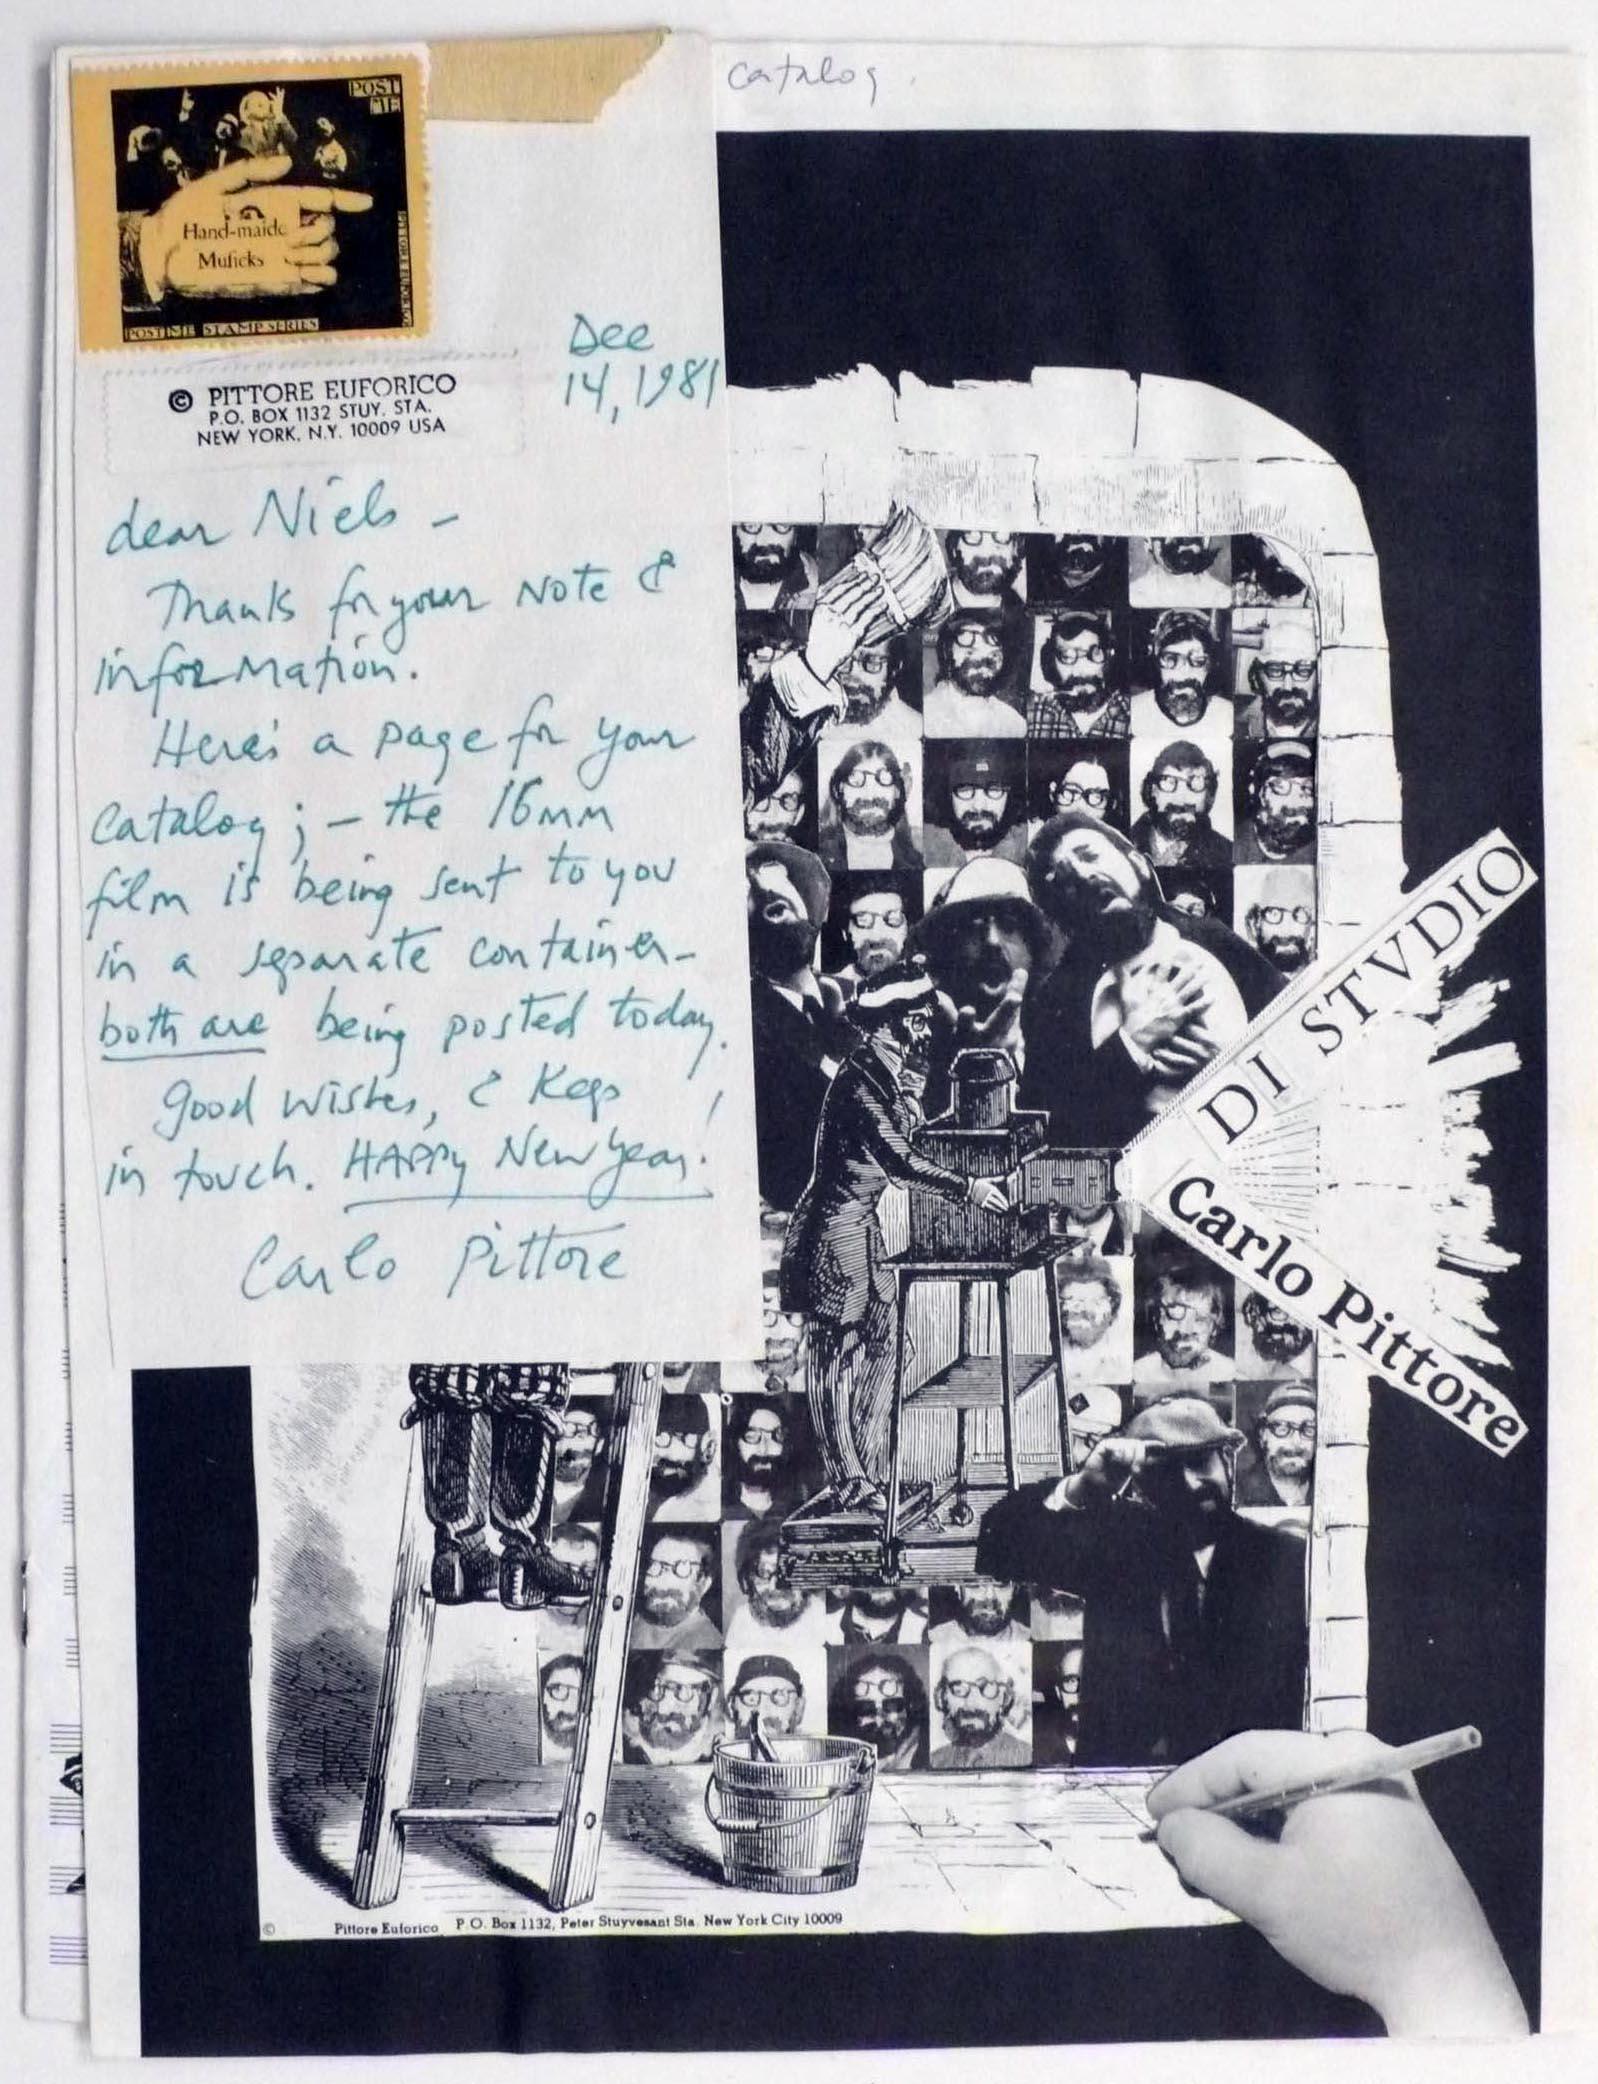 catalog.
POST
ME
Hand-maide
Muſicks
PITTORE EUFORICO
POSTME STAMP SERIES
Dec
14, 1981
© PITTORE EUFORICO
P.O. BOX 1132 STUY. STA.
NEW YORK, N.Y. 10009 USA
dear Niels -
Thanks for your note &
information.
Here's a page for your
catalog; - the 16mm
film is being sent to you
in a separate container-
both are being posted today.
Good wishes, & keep
in touch. HAPPY New Year!
Carlo Pittore
DI STVDIO
Carlo Pittore
© Pittore Euforico P.O. Box 1132, Peter Stuyvesant Sta. New York City 10009